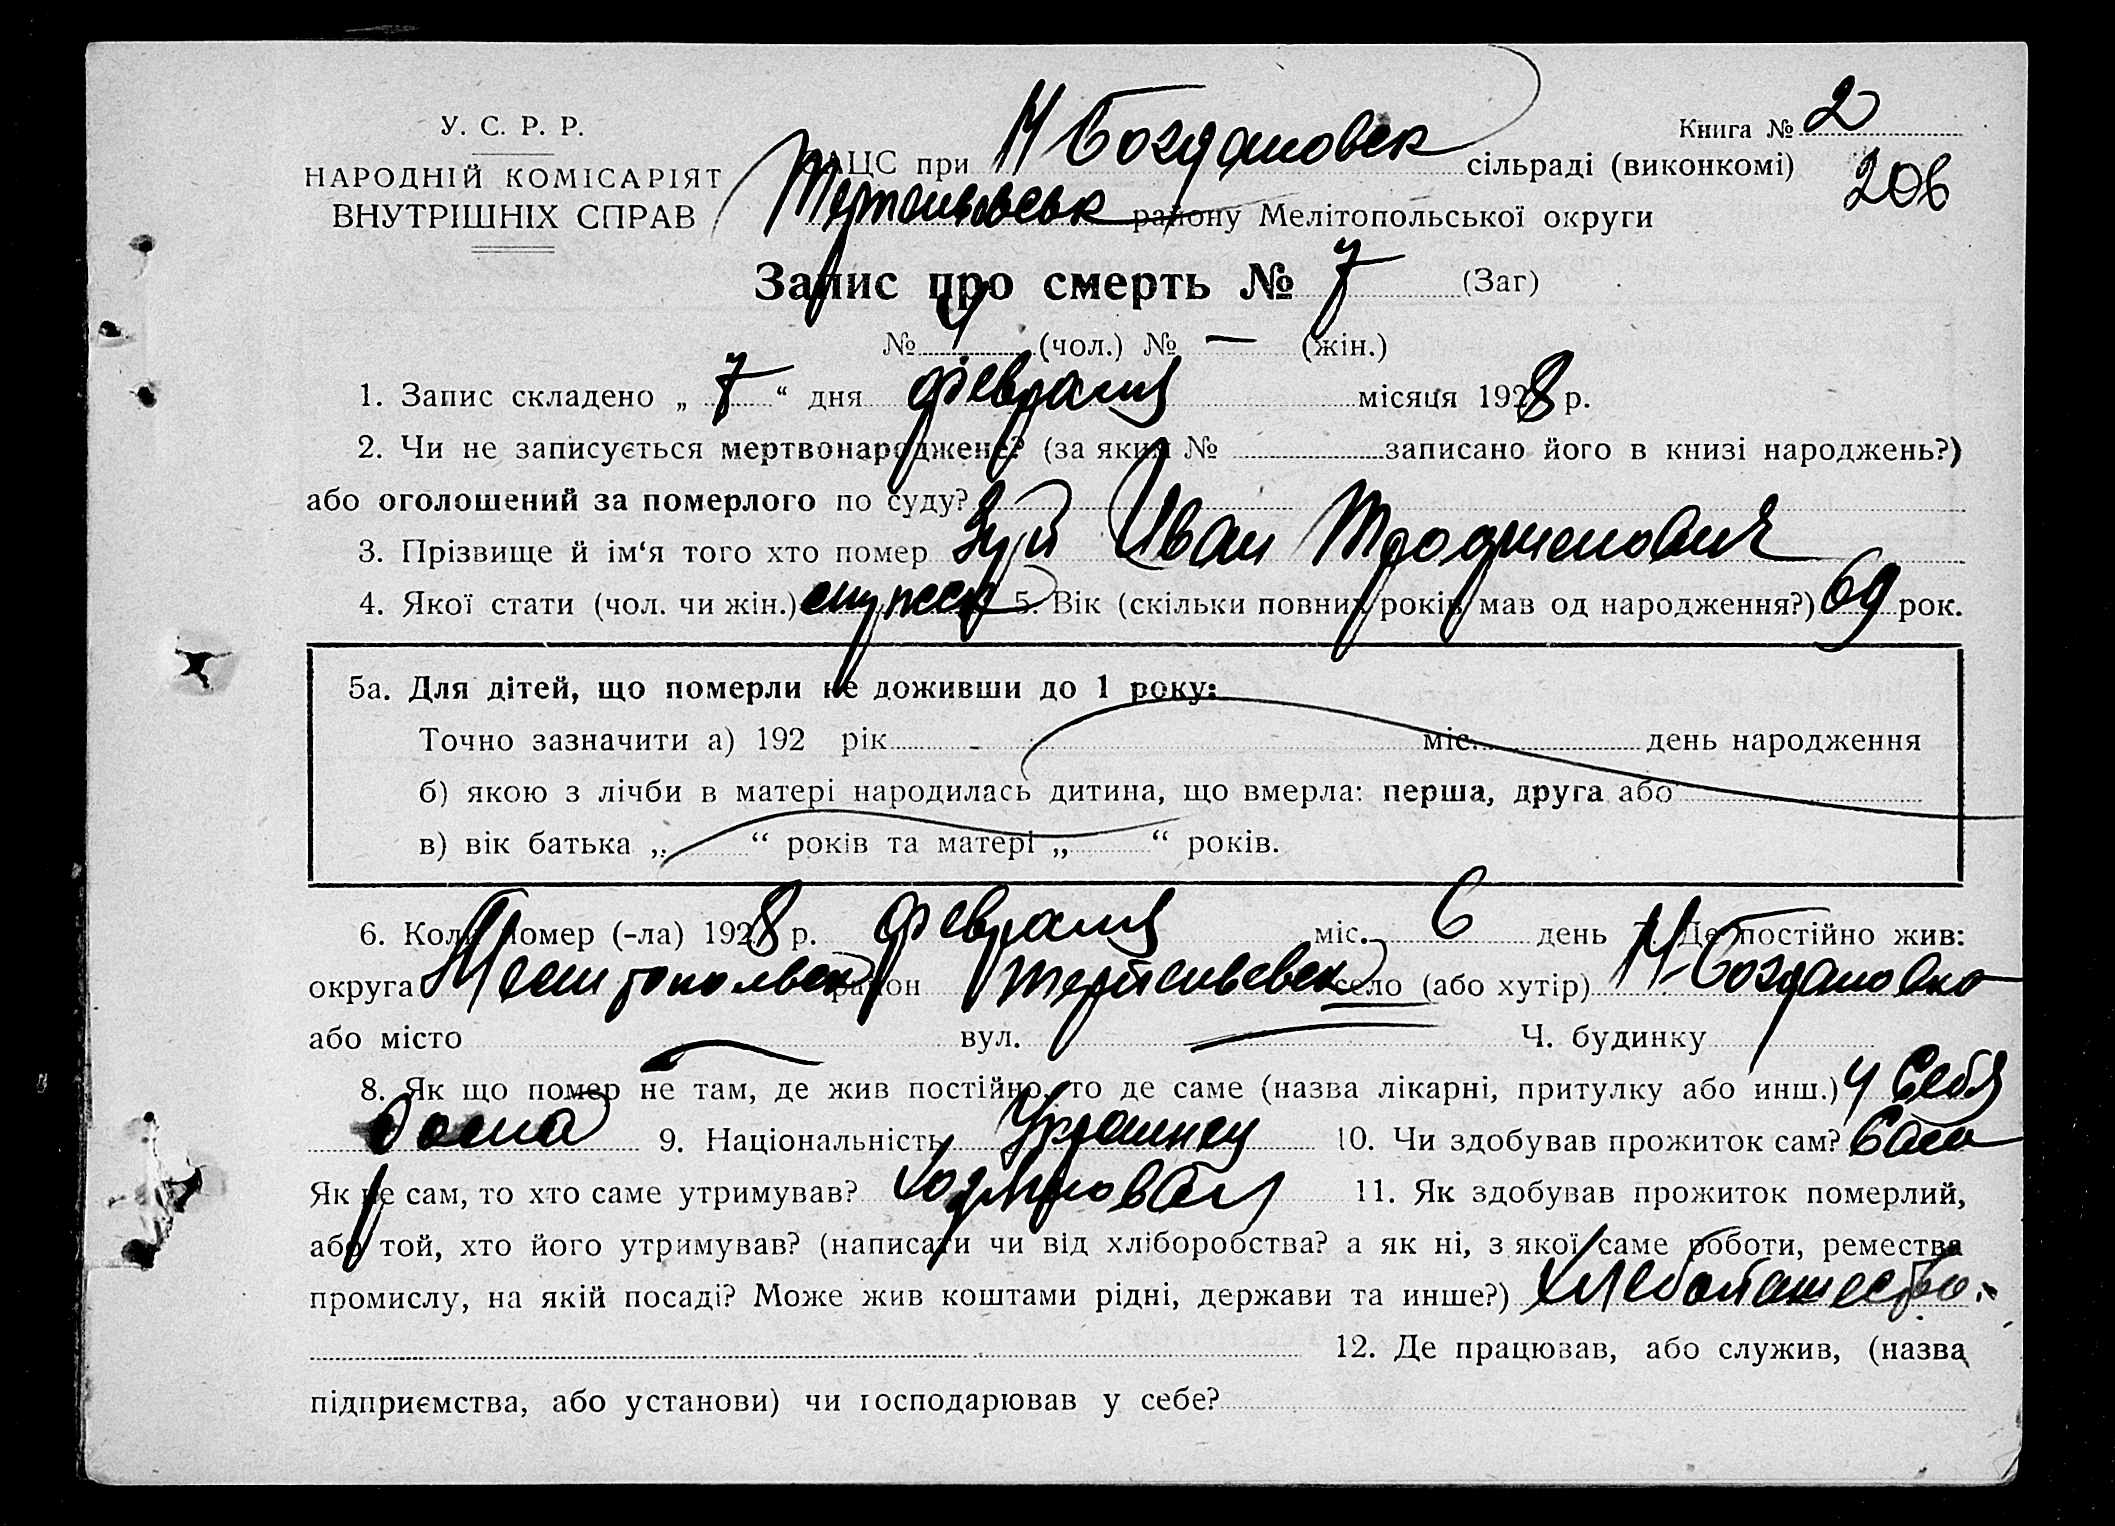 У. С. Р. Р.
НАРОДНІЙ КОМІСАРІЯТ
ВНУТРІШНІХ СПРАВ
Книга № 2
206
ЗАЦС при Н Богдановск сільраді (виконкомі)
району Мелітопольської округи
Запис про смерть № 7 (Заг)
№ 4 (чол.) № — (жін.)
1. Запис складено „ 7 “ дня февраля місяця 1928 р.
2. Чи не записується мертвонароджене? (за яким № записано його в книзі народжень?)
або оголошений за померлого по суду?
3. Прізвище й ім‘я того хто помер Зуй Иван
4. Якої стати (чол. чи жін.) мужск 5. Вік (скільки повних років мав од народження?) 69 рок.
5а. Для дітей, що померли не доживши до 1 року:
Точно зазначити а) 192 рік міс. день народження
б) якою з лічби в матері народилась дитина, що вмерла: перша, друга або
в) вік батька „ “ років та матері „ “ років.
6. Коли помер (-ла) 1928 р. февраля міс. 6 день 7. Де постійно жив:
округа Мелитопольск район село (або хутір) Н-Богдановка
або місто — вул. — Ч. будинку
8. Як що помер не там, де жив постійно, то де саме (назва лікарні, притулку або инш.) у себя
дома 9. Національність Украинец 10. Чи здобував прожиток сам? Сам
Як не сам, то хто саме утримував? 11. Як здобував прожиток померлий,
або той, хто його утримував? (написати чи від хліборобства? а як ні, з якої саме роботи, ремества
промислу, на якій посаді? Може жив коштами рідні, держави та инше?) хлебопашество.
12. Де працював, або служив, (назва
підприємства, або установи) чи господарював у себе?